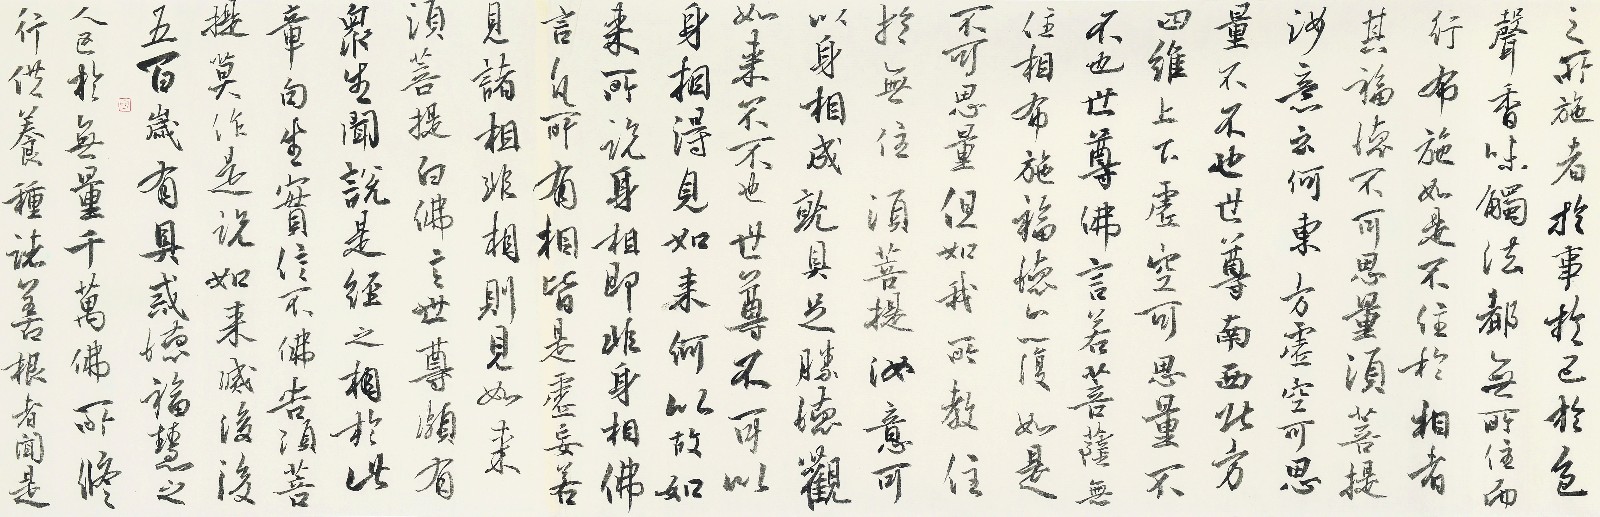 之所施者於事於己於色
聲香味觸法都無所住而
行布施如是不住於相者
其福德不可思量須菩提
汝意云何東方虛空可思
量不不也世尊南西北方
四維上下虛空可思量不
不也世尊佛言若菩薩無
住相布施福德亦復如是
不可思量但如我所教住
於無住須菩提汝意可
以身相成就具足勝德觀
如來不不也世尊不可以
身相得見如來何以故如
來所說身相即非身相佛
言凡所有相皆是虛妄若
見諸相非相則見如來
須菩提白佛言世尊頗有
眾生聞說是經之相於此
章句生實信不佛告須菩
提莫作是說如來滅後後
五百歲有具戒德福慧之
人已於無量千萬佛所修
行供養種諸善根者聞是